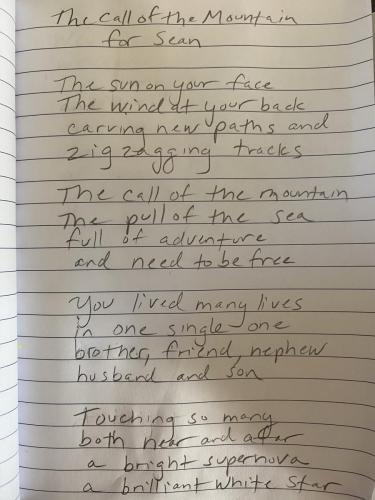 The Call of the Mountain
for Sean
The sun on your face
The wind at your back
carving new paths and
zigzagging tracks
The call of the mountain
The pull of the sea
full of adventure
and need to be free
You lived many lives
in one single one
brother, friend, nephew
husband and son
Touching so many
both near and afar
a bright supernova
a brilliant white star